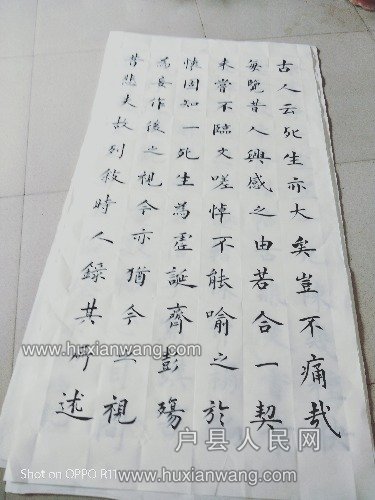 古人云死生亦大矣豈不痛哉
每覽昔人興感之由若合一契
未嘗不臨文嗟悼不能喻之於
懷固知一死生為虛誕齊彭殤
為妄作後之視今亦猶今之視
昔悲夫故列敘時人錄其所述
www.huxianwang.com
www.huxianwang.com
户县人民网
www.huxianwang.com
Shot on OPPO R11